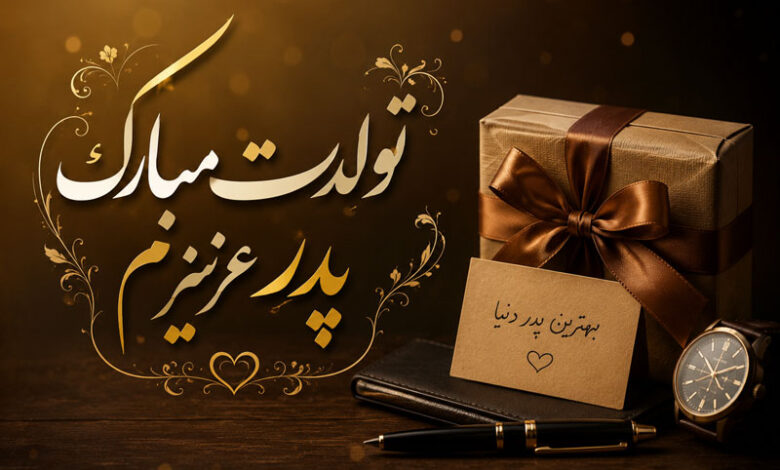 تولدت مبارک
پدر عزیزم
بهترین پدر دنیا